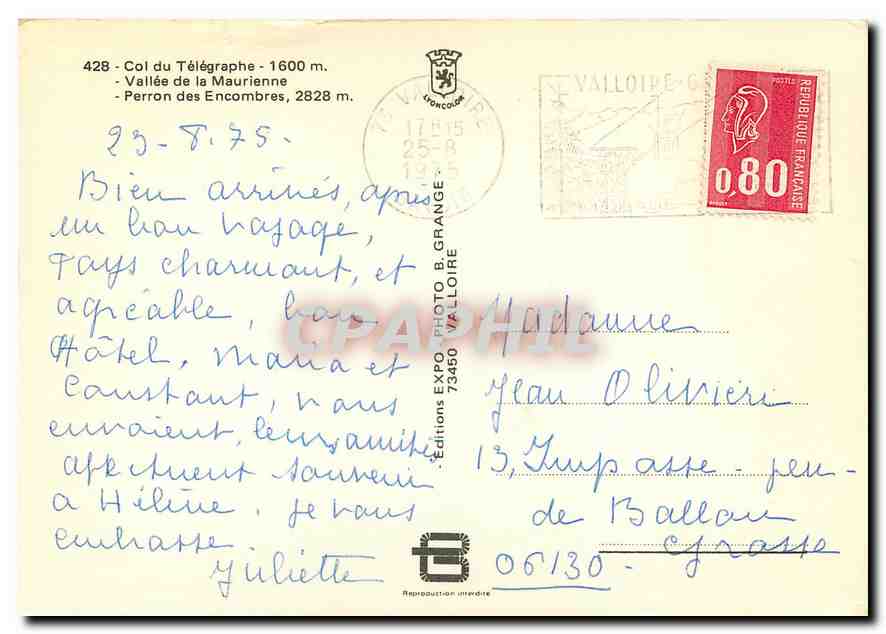 428 - Col du Télégraphe - 1600 m.
- Vallée de la Maurienne
- Perron des Encombres, 2828 m.
LYONCOLOR
73 VALLOIRE
17H15
25-8
1975
SAVOIE
VALLOIRE-G
POSTES
REPUBLIQUE FRANÇAISE
0,80
23-8.75.
Bien arrivés, après
un bon voyage,
Pays charmant, et
agréable, bon
Hôtel, Maria et
Constant, vous
envoient, leurs amitiés
affectueux souvenir
a Hélène. Je vous
embrasse
Juliette
- Editions EXPO - PHOTO B. GRANGE -
73450 VALLOIRE
CPAPHIL
Madame
Jean Olivieri
13, Impasse - jeu -
de Ballon
Grasse
06130 -
Reproduction interdite